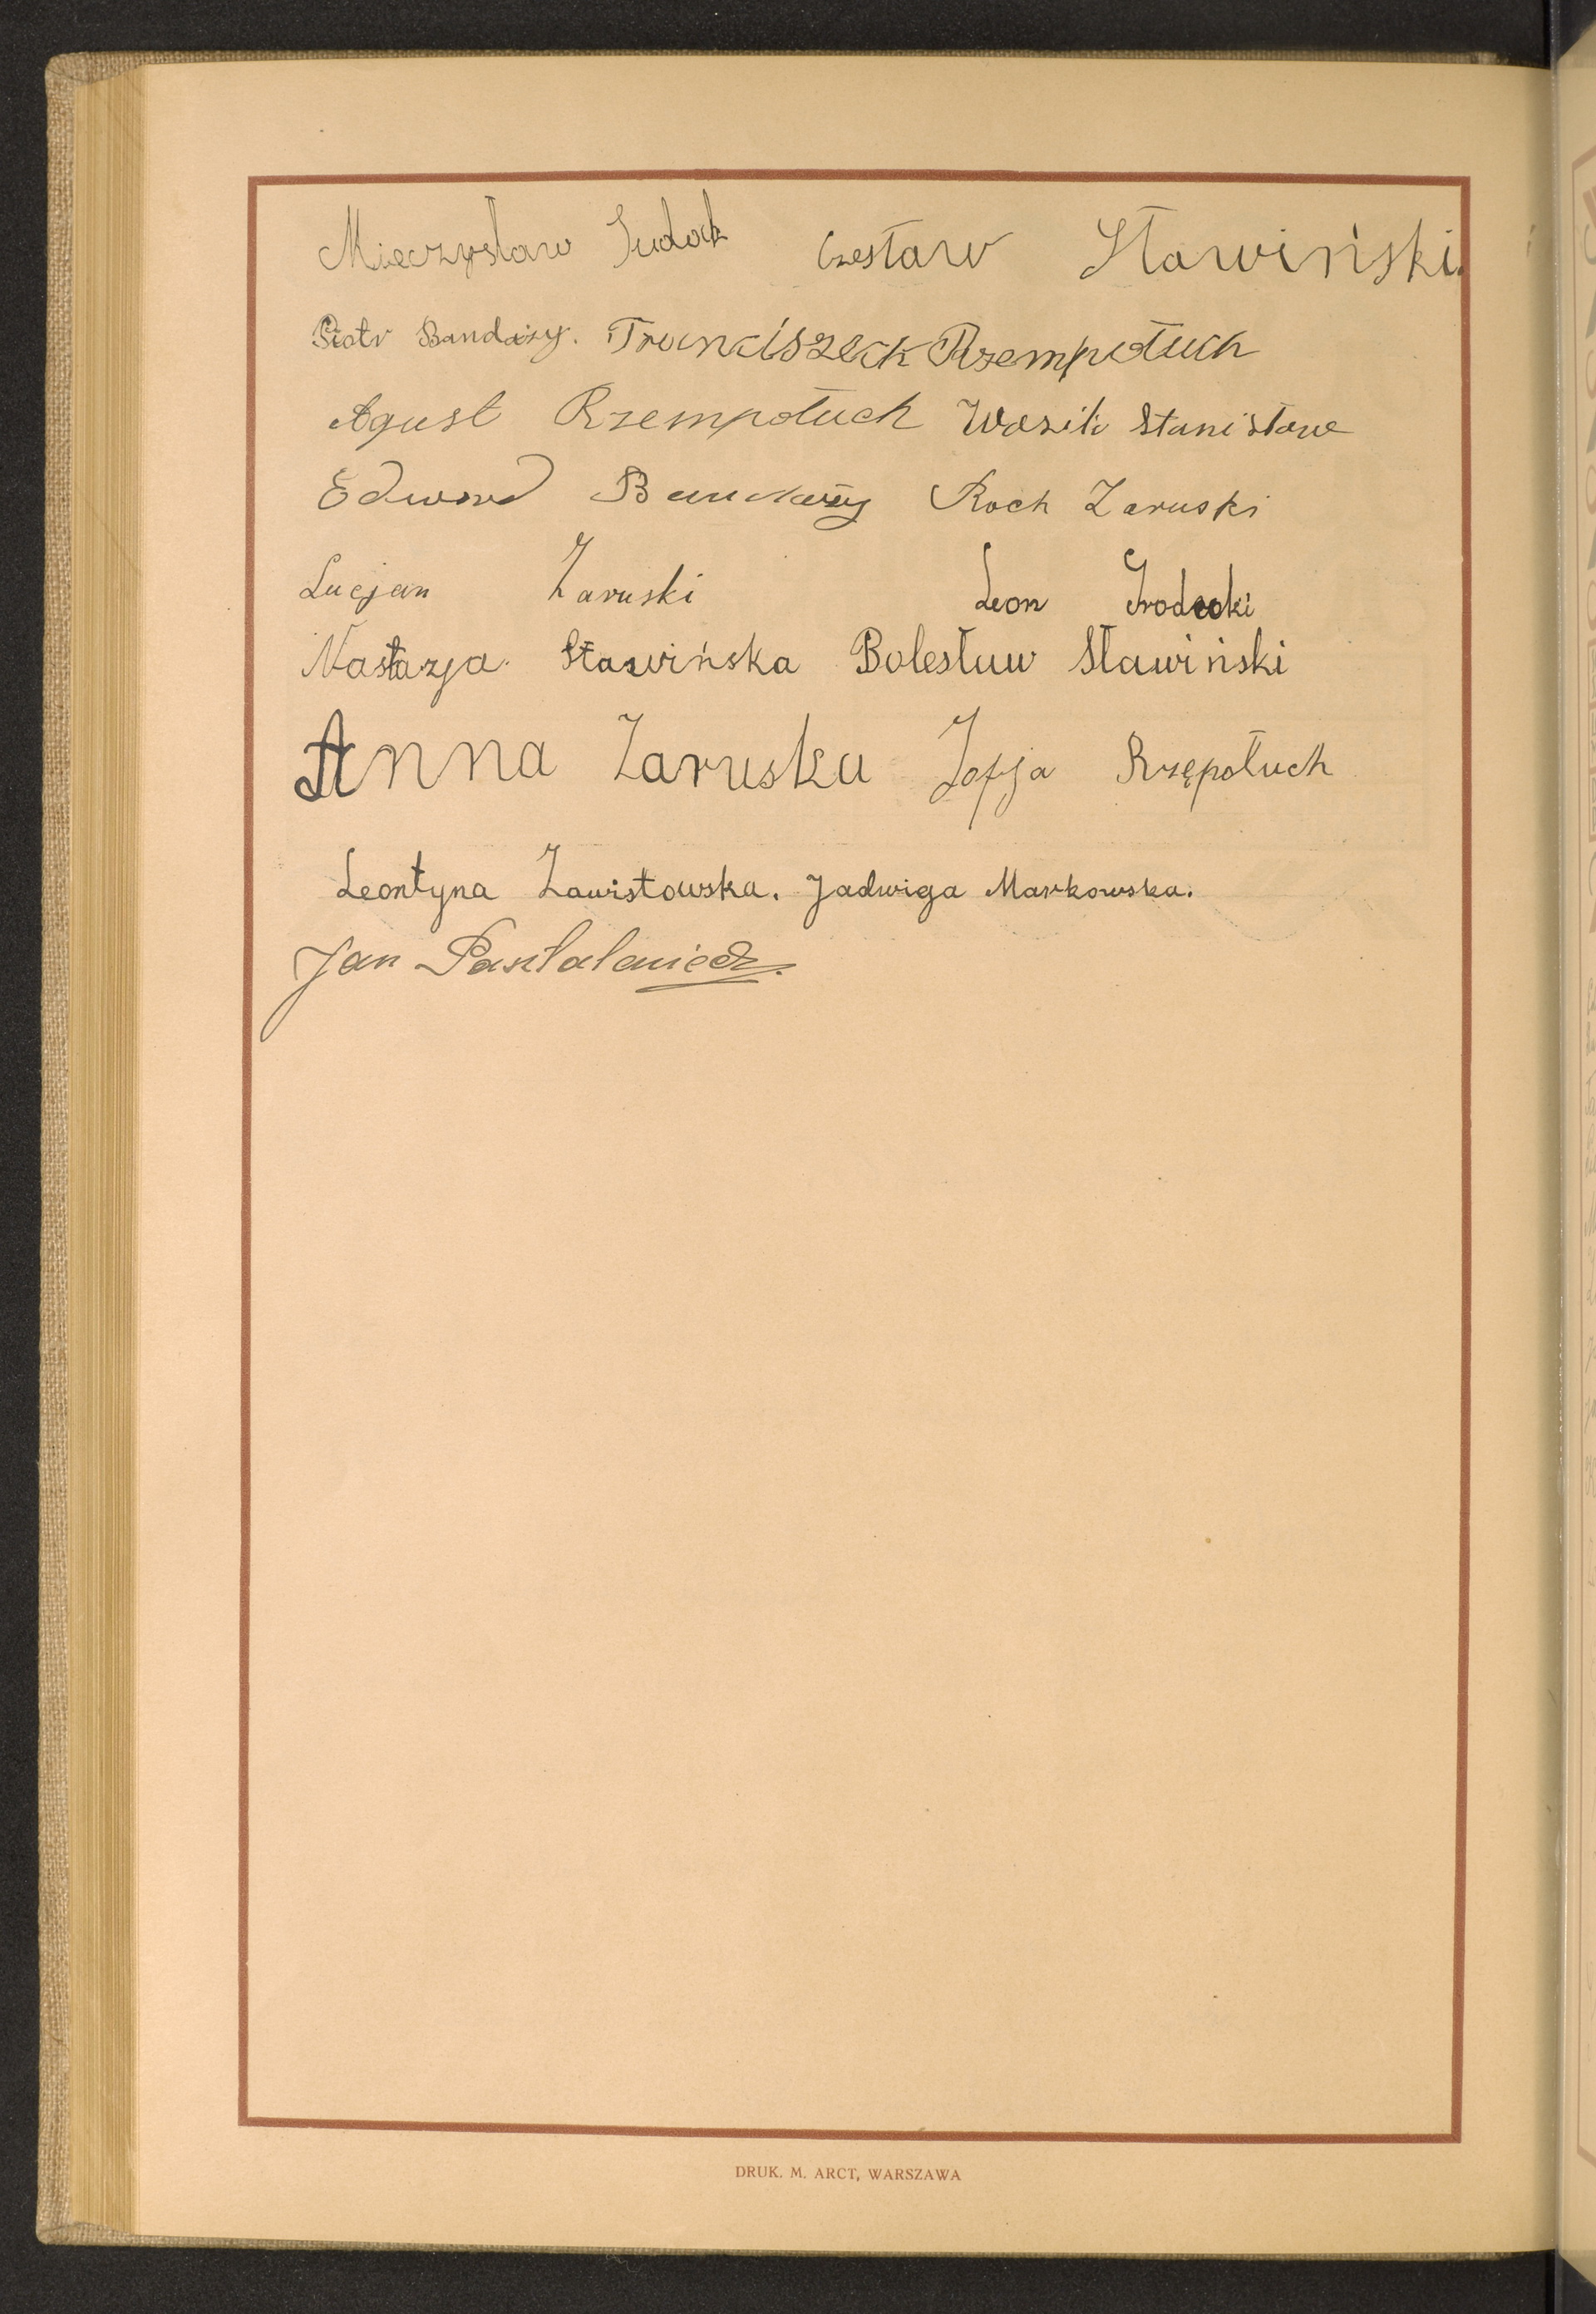 Mieczysław Judock Czesław Sławiński.
Piotr Bandazy. Franciszeck Rzempołuch
Agust Rzempołuch Wasili Stanisław
Edward Bandazy Roch Zaruski
Lucjan Zaruski Leon
Nastazja. Sławińska Bolesław Sławiński
Anna Zaruska Zofja Rzępołuch
Leontyna Zawistowska. Jadwiga Markowska.
Jan
DRUK. M. ARCT, WARSZAWA